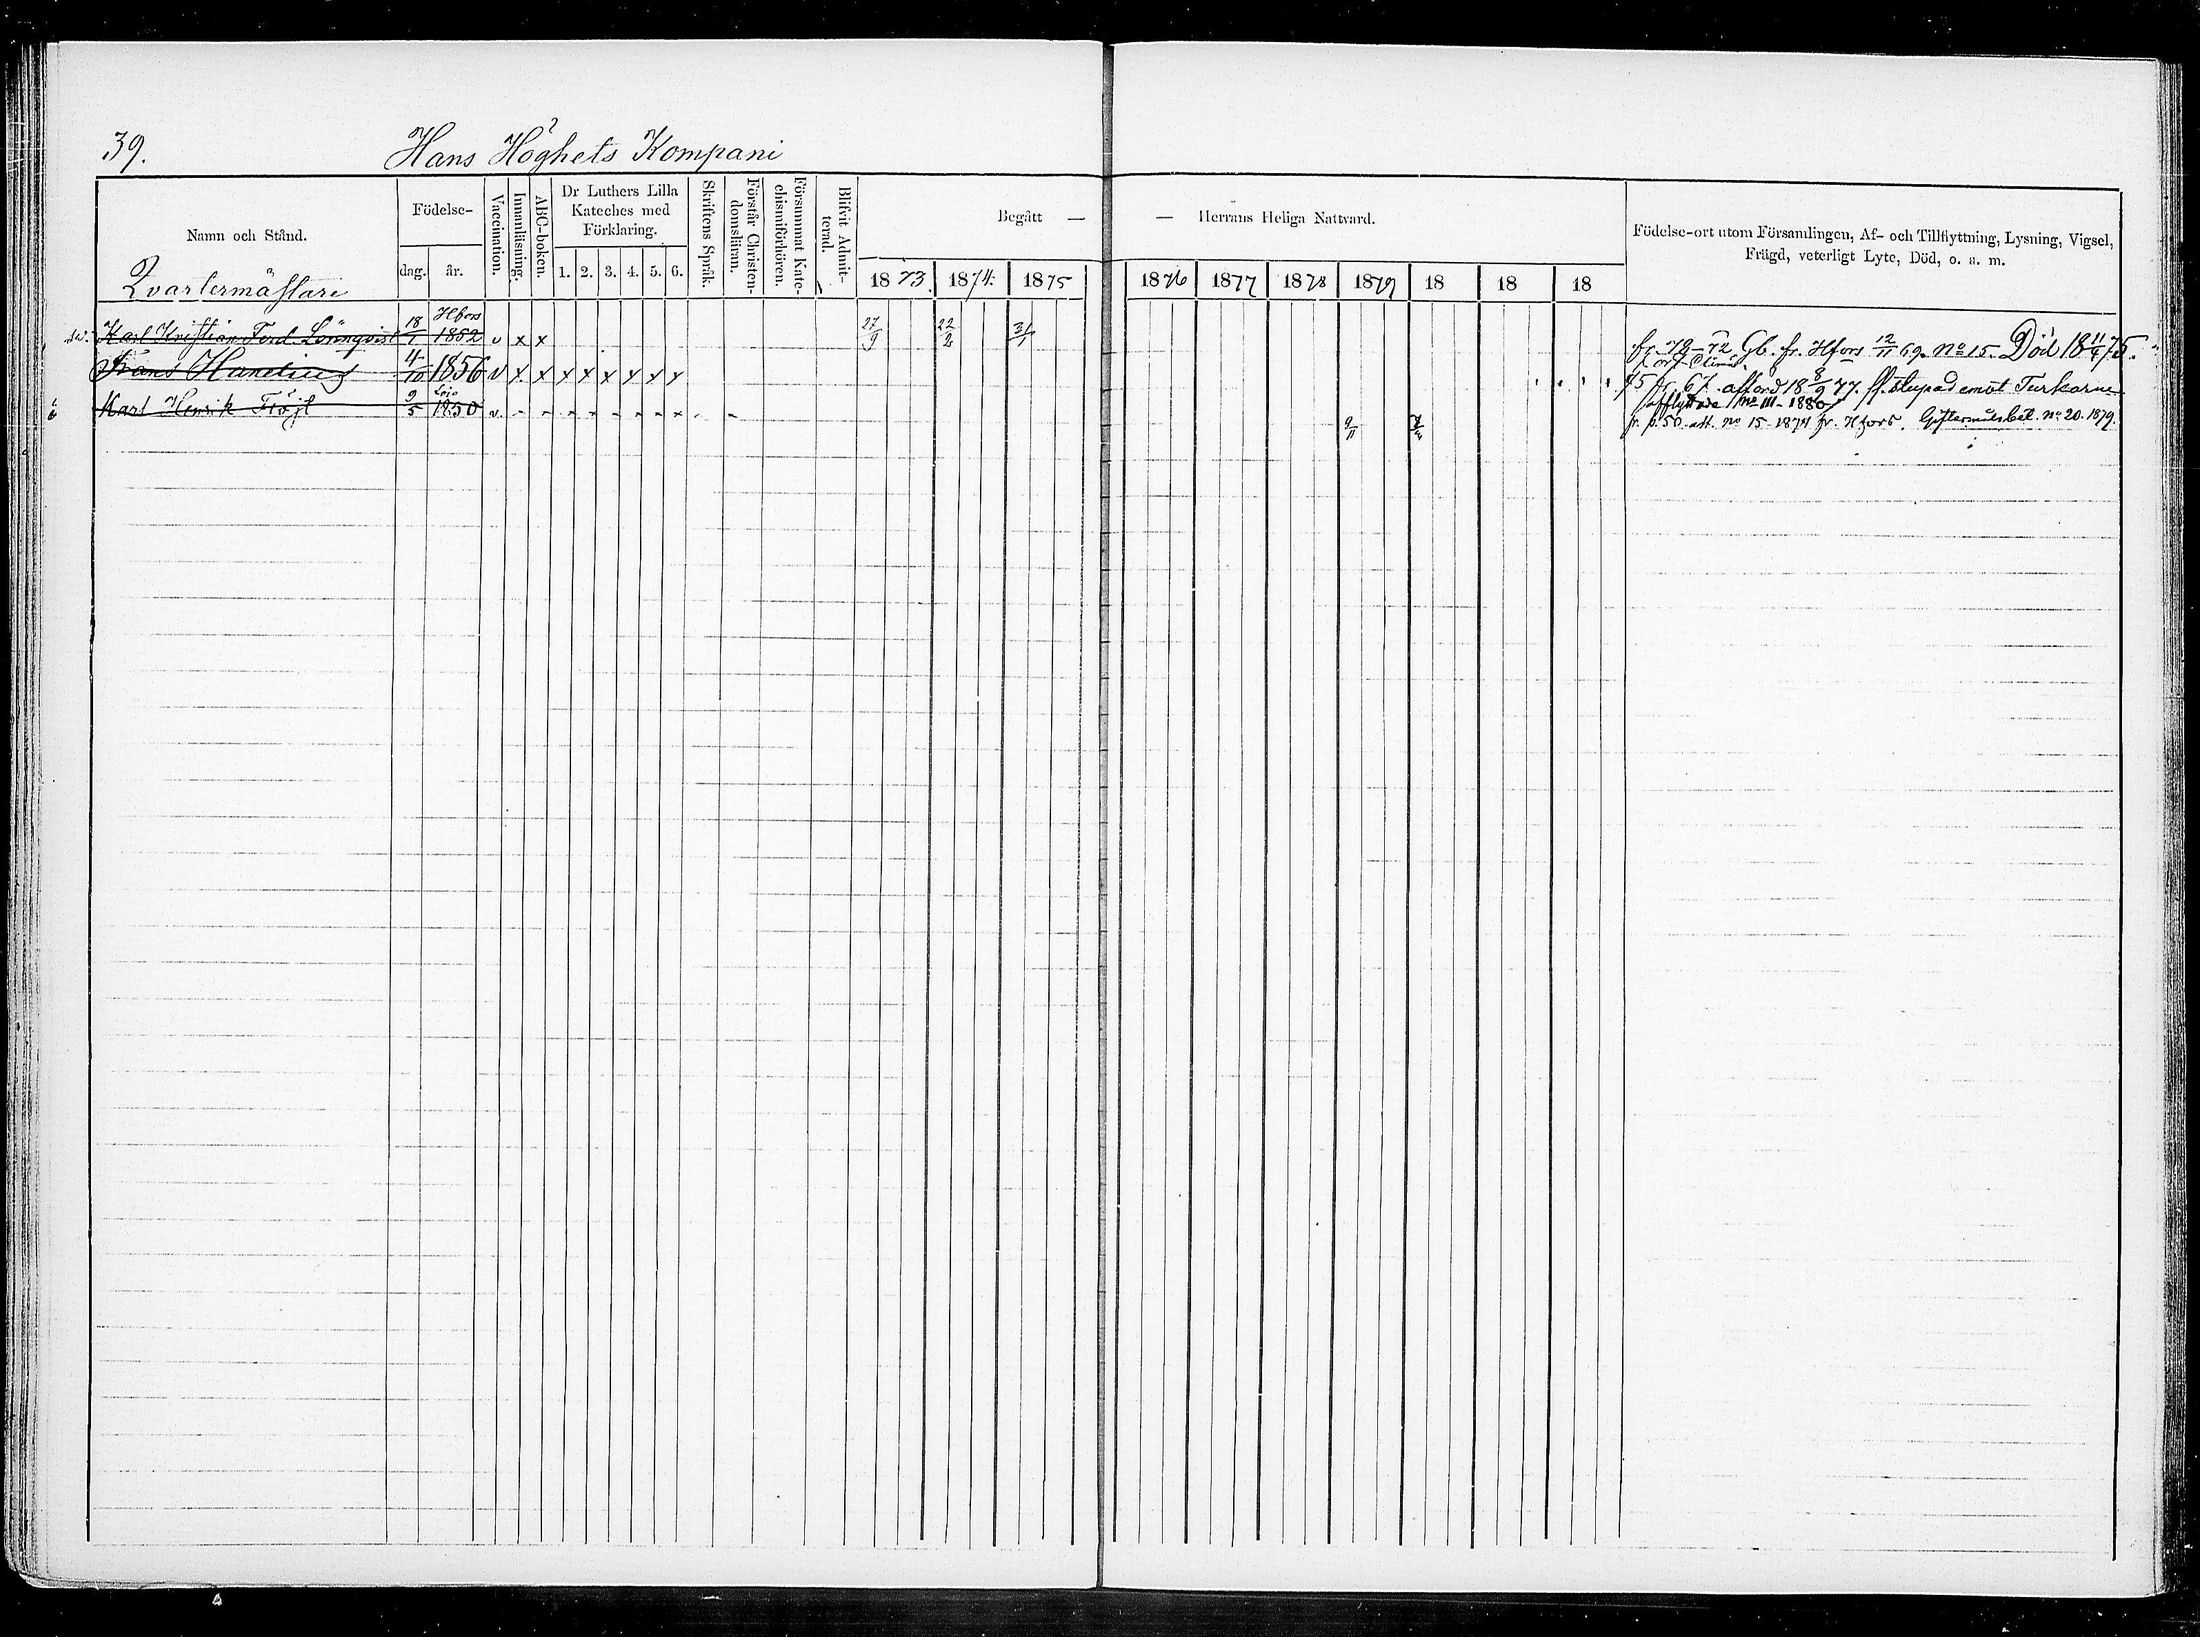 39.
Hans Höghets Kompani
Namn och Stånd.
Qvartermästare
Födelse-
dag. år.
Vaccination.
Innanläsning.
ABC-boken.
Dr Luthers Lilla
Kateches med
Förklaring.
1. 2. 3. 4. 5. 6.
Skriftens Språk.
Förstår Christen-
domsläran.
Försummat Kate-
chismiförhören.
Blifvit Admit-
terad.
Begått —
— Herrans Heliga Nattvard.
1873. 1874. 1875 1876 1877 1878 1879 18 18 18
Födelse-ort utom Församlingen, Af- och Tillflyttning, Lysning, Vigsel,
Frägd, veterligt Lyte, Död, o. a. m.
Hfors
Karl Kristian Ferd. Lönnqvist 18/1 1852 v x x 27/9 22/2 31/1 fr. 72-72. Gb. fr. Hfors 12/11 69. No 15. Död 18 11/4 75.
Frans Hunelius 4/10 1856 v x x x x x x x x 75 fr. 67. afford 18 8/9 77. ff. stupad emot Turkarne
Lojo
afflyttade No 111-1880
Karl Henrik Fröjl 9/5 1850 v - - - x x - - - x - - 9/11 fr. p. 50 att. No 15-1871 fr. Hfors. Giftermålsbet. No 20. 1879.